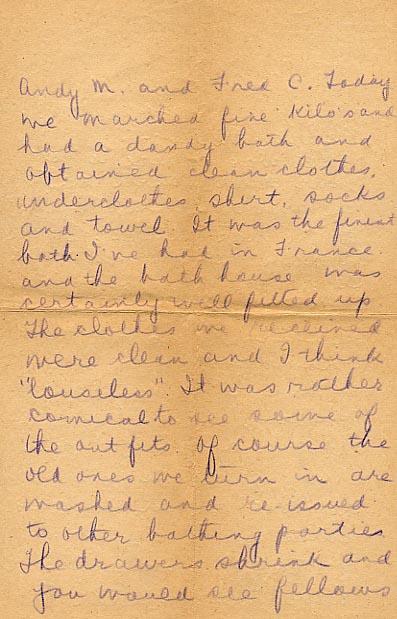 Andy M. and Fred C. Today
we marched five kilos and
had a dandy bath and
obtained clean clothes,
underclothes, shirt, socks
and towel. It was the finest
bath I've had in France
and the bath house was
certainly well fitted up
The clothes we recieved
were clean and I think
"louseless". It was rather
comical to see some of
the outfits. Of course the
old ones we turn in are
washed and re-issued
to other bathing parties
The drawers shrink and
you would see fellows